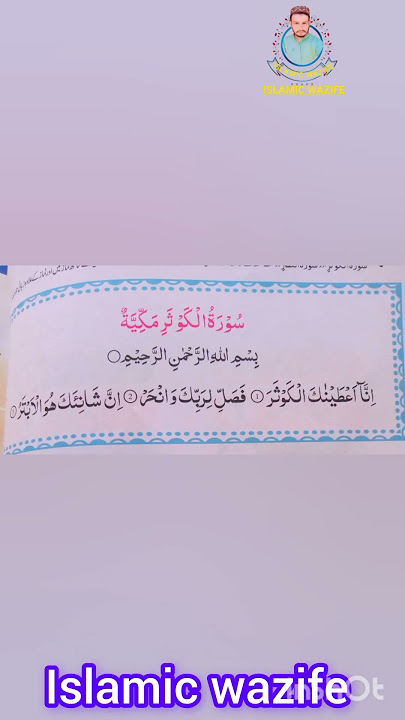 ISLAMIC WAZIFE
سُوْرَةُ الْكَوْثَرِ مَكِّيَّةٌ
بِسْمِ اللهِ الرَّحْمٰنِ الرَّحِيْمِ
اِنَّاۤ اَعْطَيْنٰكَ الْكَوْثَرَ ① فَصَلِّ لِرَبِّكَ وَانْحَرْ ② اِنَّ شَانِئَكَ هُوَ الْاَبْتَرُ
Islamic wazife